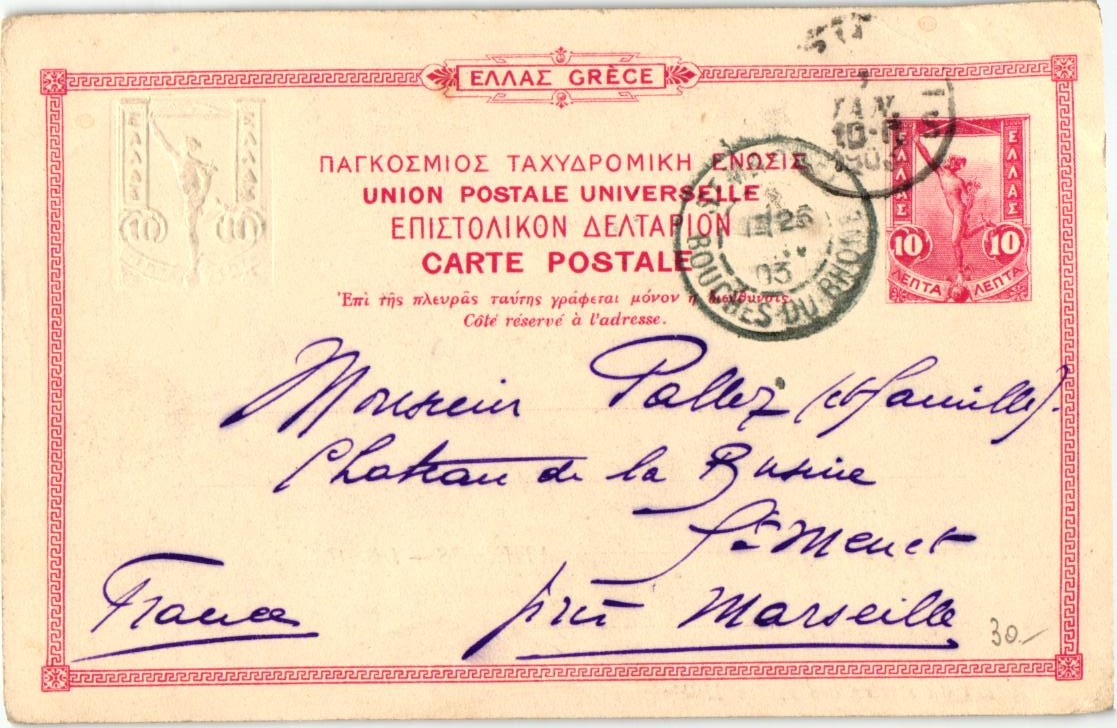 ΕΛΛΑΣ GRÈCE
ΠΑΓΚΟΣΜΙΟΣ ΤΑΧΥΔΡΟΜΙΚΗ ΕΝΩΣΙΣ
UNION POSTALE UNIVERSELLE
ΕΠΙΣΤΟΛΙΚΟΝ ΔΕΛΤΑΡΙΟΝ
CARTE POSTALE
Ἐπὶ τῆς πλευρᾶς ταύτης γράφεται μόνον ἡ διεύθυνσις.
Côté réservé à l'adresse.
ΕΛΛΑΣ
ΕΛΛΑΣ
10
10
ΕΛΛΑΣ
ΕΛΛΑΣ
10
10
ΛΕΠΤΑ
ΛΕΠΤΑ
ΙΑΝ.
BOUCHES-DU-RHONE
03
Monsieur Pallez (et famille).
Chateau de la Busine
St Menet
près Marseille
France
30.-